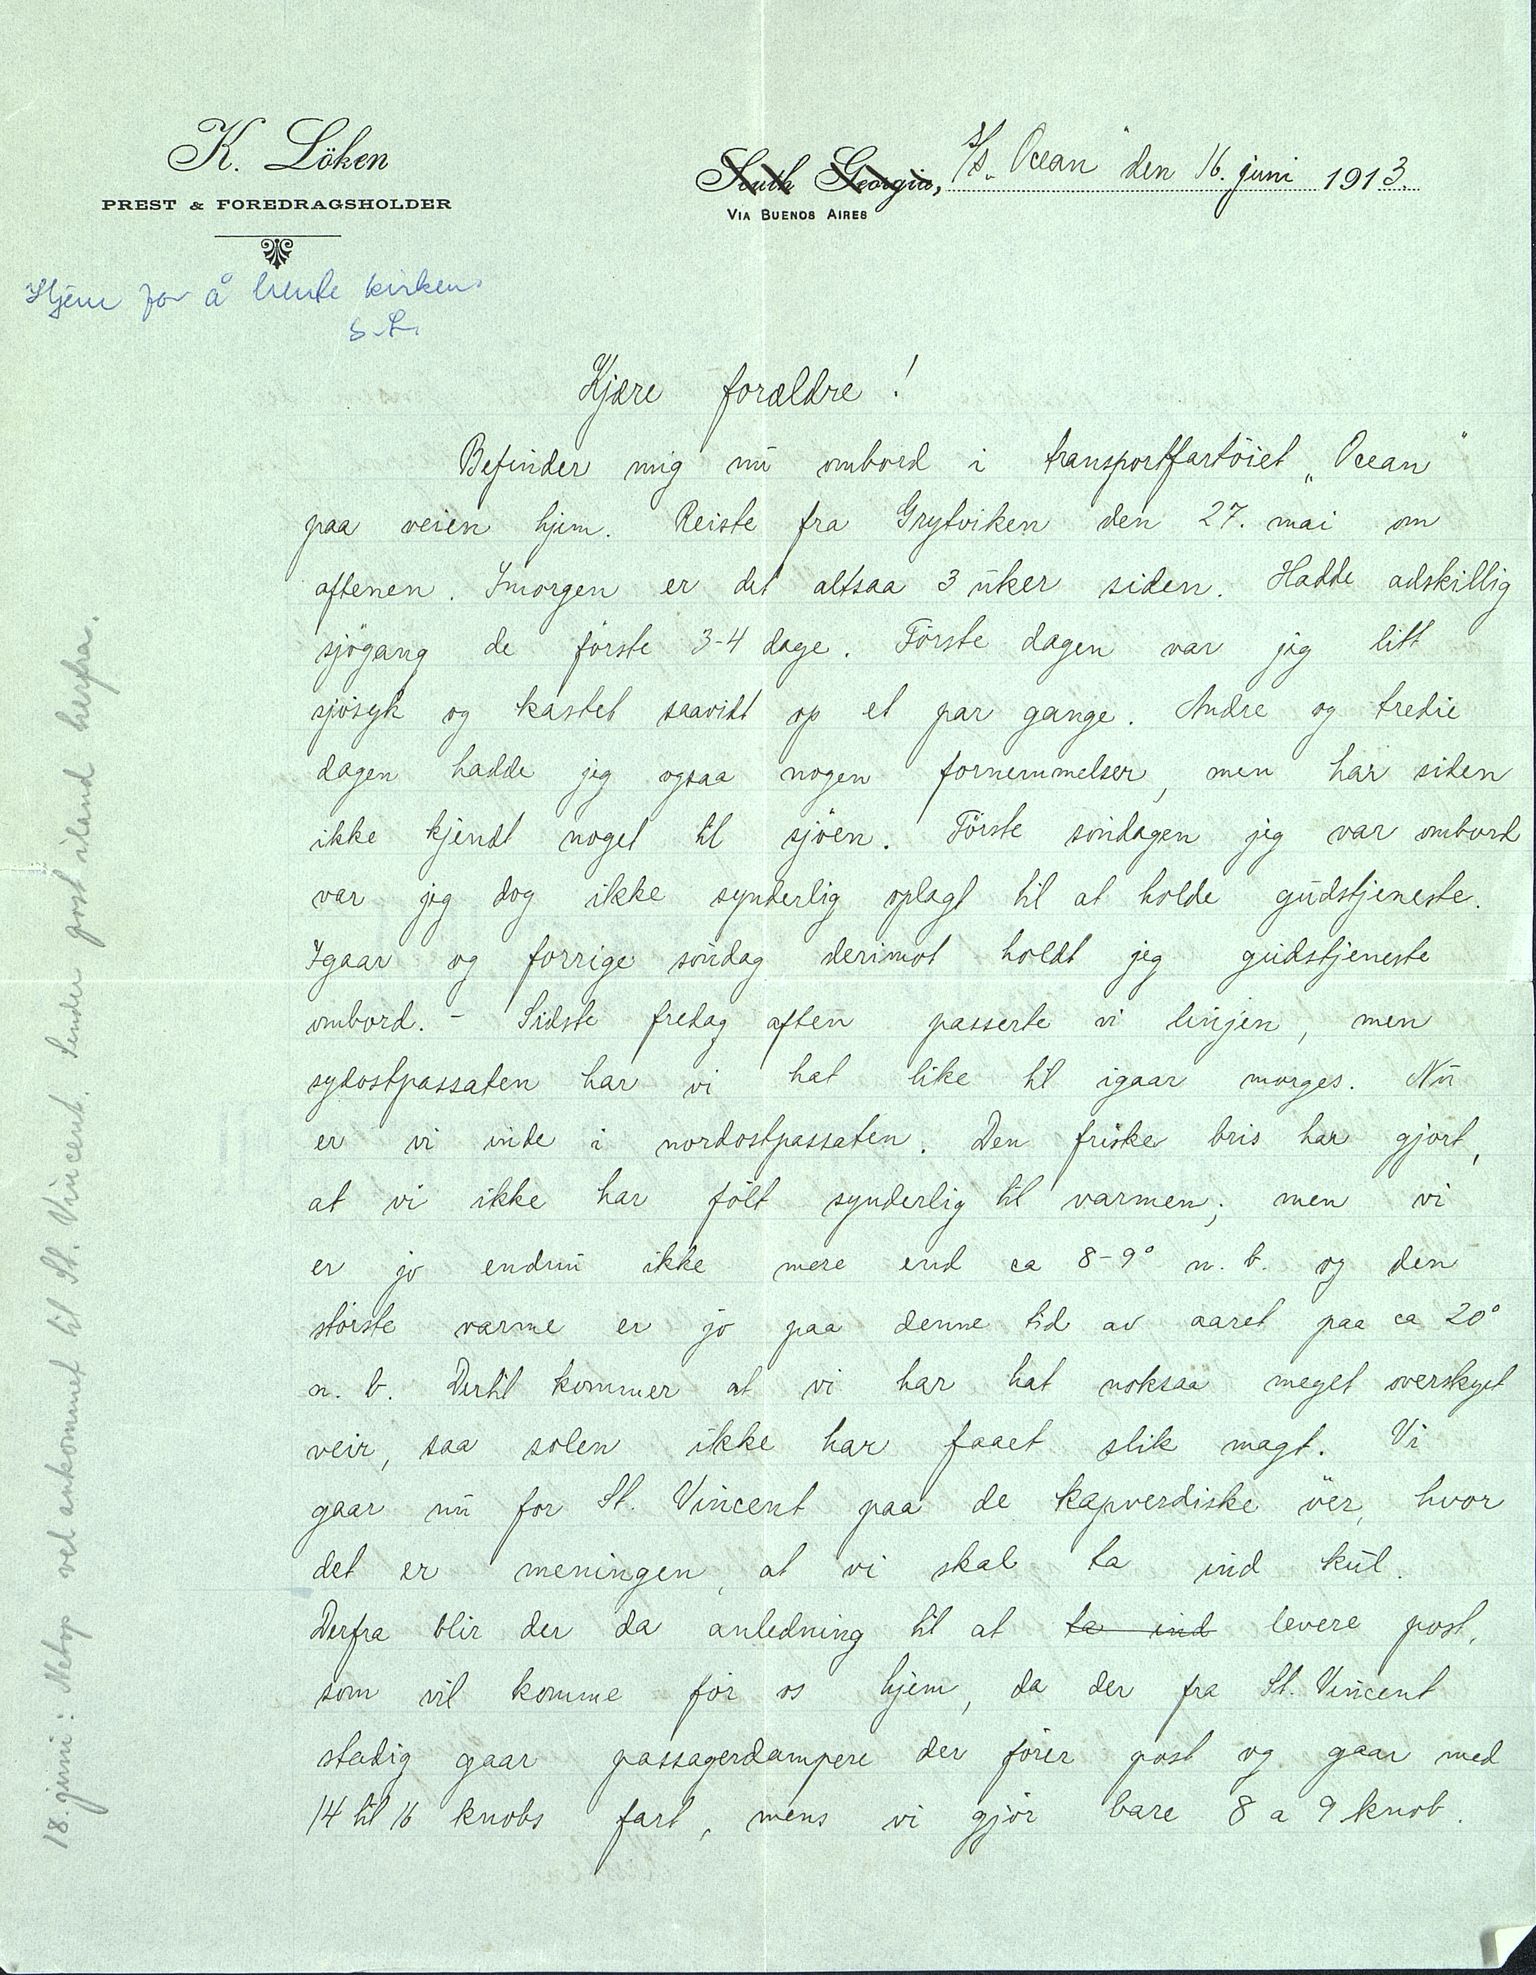 K. Löken
PREST & FOREDRAGSHOLDER
South Georgia, S/S. „Ocean" den 16. juni 1913.
VIA BUENOS AIRES
Hjem for å hente kirken.
S.L.
Kjære forældre!
Befinder mig nu ombord i transportfartöiet „Ocean"
paa veien hjem. Reiste fra Grytviken den 27. mai om
aftenen. Imorgen er det altsaa 3 uker siden. Hadde adskillig
sjögang de förste 3-4 dage. Förste dagen var jeg litt
sjösyk og kastet saavidt op et par gange. Andre og tredie
dagen hadde jeg ogsaa nogen fornemmelser, men har siden
ikke kjendt noget til sjöen. Förste söndagen jeg var ombord
var jeg dog ikke synderlig oplagt til at holde gudstjeneste.
Igaar og forrige söndag derimot holdt jeg gudstjeneste
ombord. - Sidste fredag aften passerte vi linjen, men
sydostpassaten har vi hat like til igaar morges. Nu
er vi inde i nordostpassaten. Den friske bris har gjort,
at vi ikke har fölt synderlig til varmen; men vi
er jo endnu ikke mere end ca 8-9° n. b. og den
störste varme er jo paa denne tid av aaret paa ca 20°
n. b. Dertil kommer at vi har hat noksaa meget overskyet
veir, saa solen ikke har faaet slik magt. Vi
gaar nu for St. Vincent paa de kapverdiske öer, hvor
det er meningen, at vi skal ta ind kul.
Derfra blir der da anledning til at ta ind levere post,
som vil komme för os hjem, da der fra St. Vincent
stadig gaar passagerdampere der förer post og gaar med
14 til 16 knobs fart, mens vi gjör bare 8 a 9 knob.
18. juni: Netop vel ankommet til St. Vincent. Sender post iland herfra.